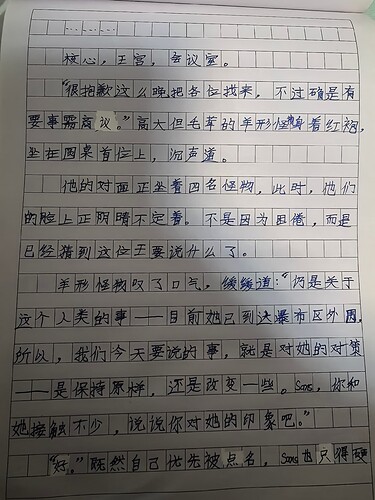 ……………
核心，王宫，会议室。
“很抱歉这么晚把各位找来，不过确是有
要事需商议。”高大但毛茸的羊形怪物身着红袍，
坐在圆桌首位上，沉声道。
他的对面正坐着四名怪物，此时，他们
的脸上正阴晴不定着。不是因为困倦，而是
已经猜到这位王要说什么了。
羊形怪物叹了口气，缓缓道：“仍是关于
这个人类的事——目前她已到达瀑布区外围，
所以，我们今天要说的事，就是对她的对策
——是保持原样，还是改变一些。sans，你和
她接触不少，说说你对她的印象吧。”
“好。”既然自己优先被点名，sans也只得硬